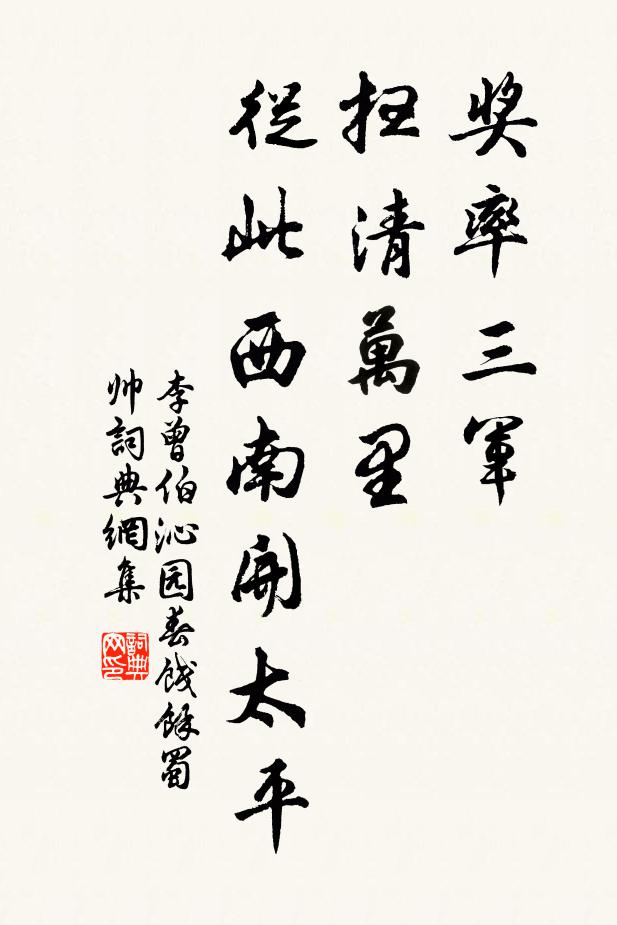 奖率三軍
扫清萬里
從此西南開太平
李曾伯沁园春餞餘蜀
帅詞典網集
詞典网印